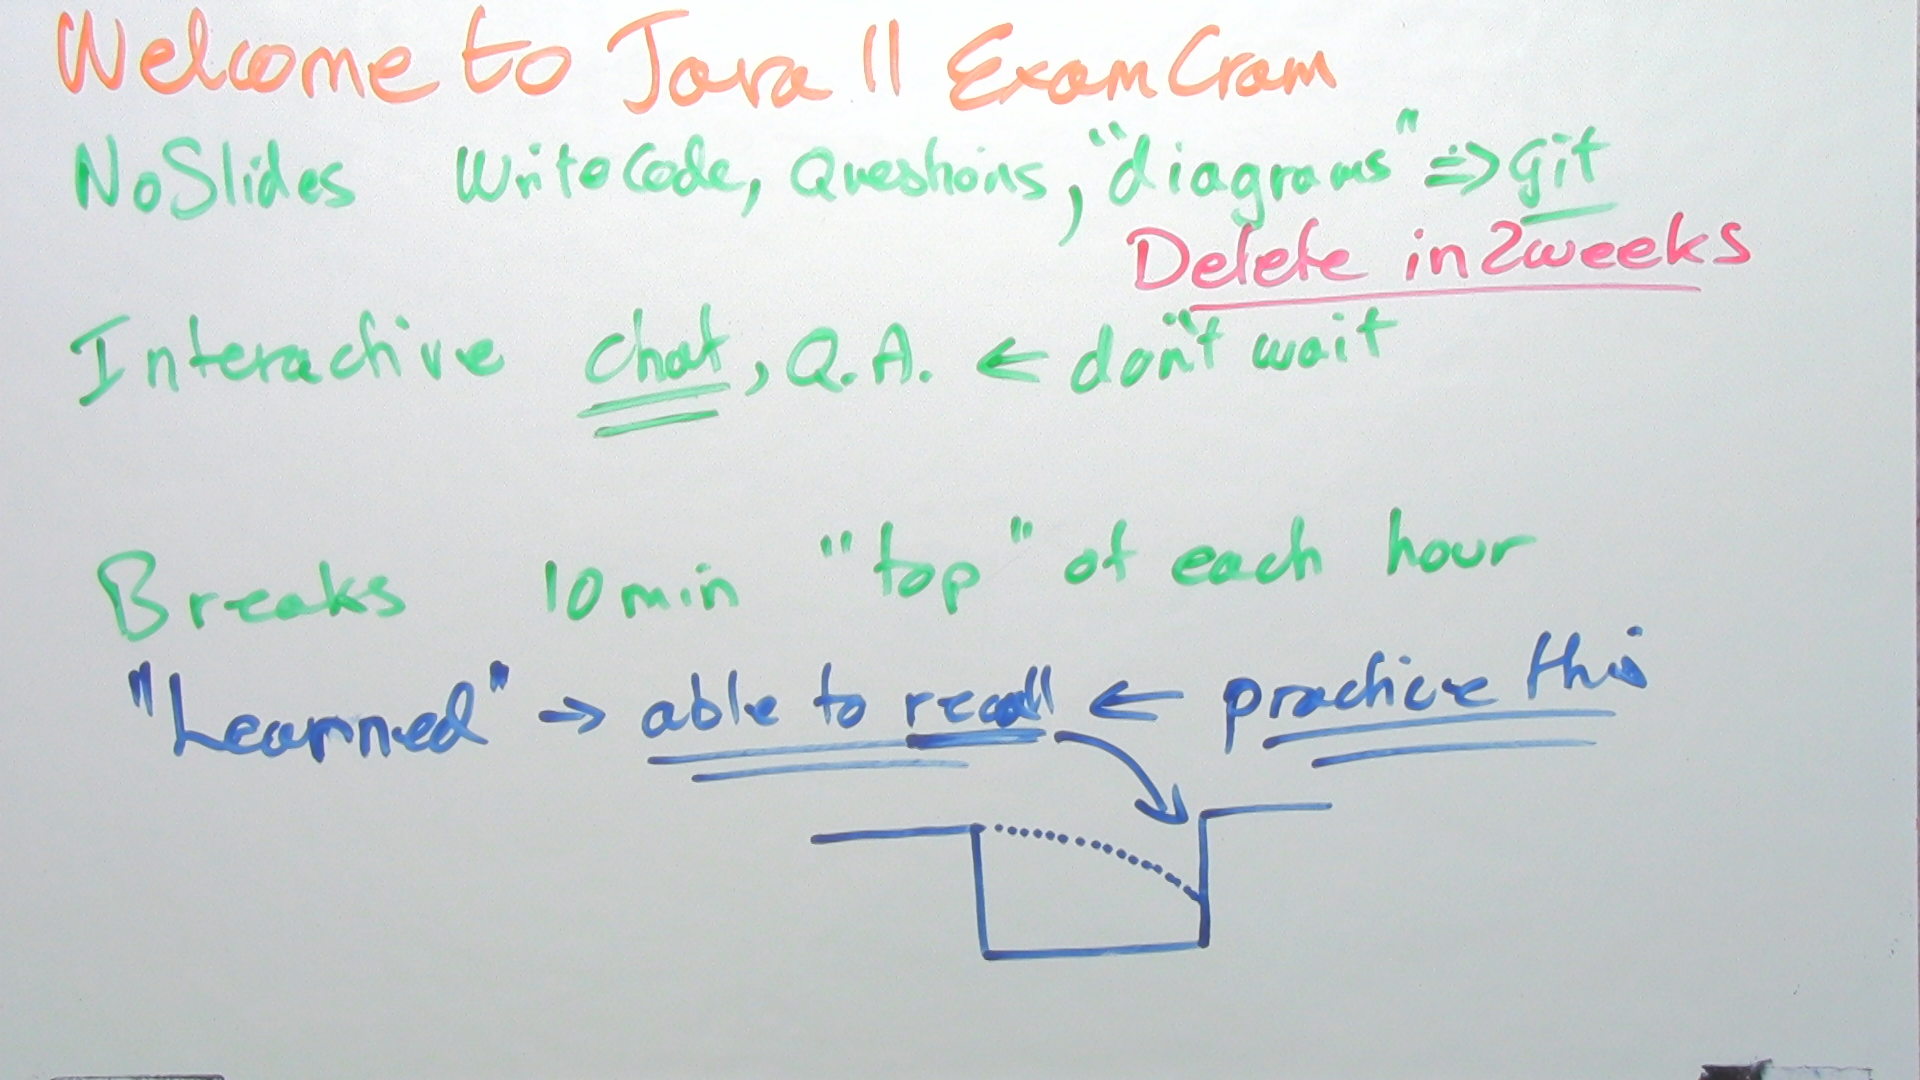 Welcome to Java 11 Exam Cram
No Slides Write Code, Questions, "diagrams" => git
Delete in 2 weeks
Interactive chat, Q.A. ← don't wait
Breaks 10 min "top" of each hour
"Learned" → able to recall ← practice this